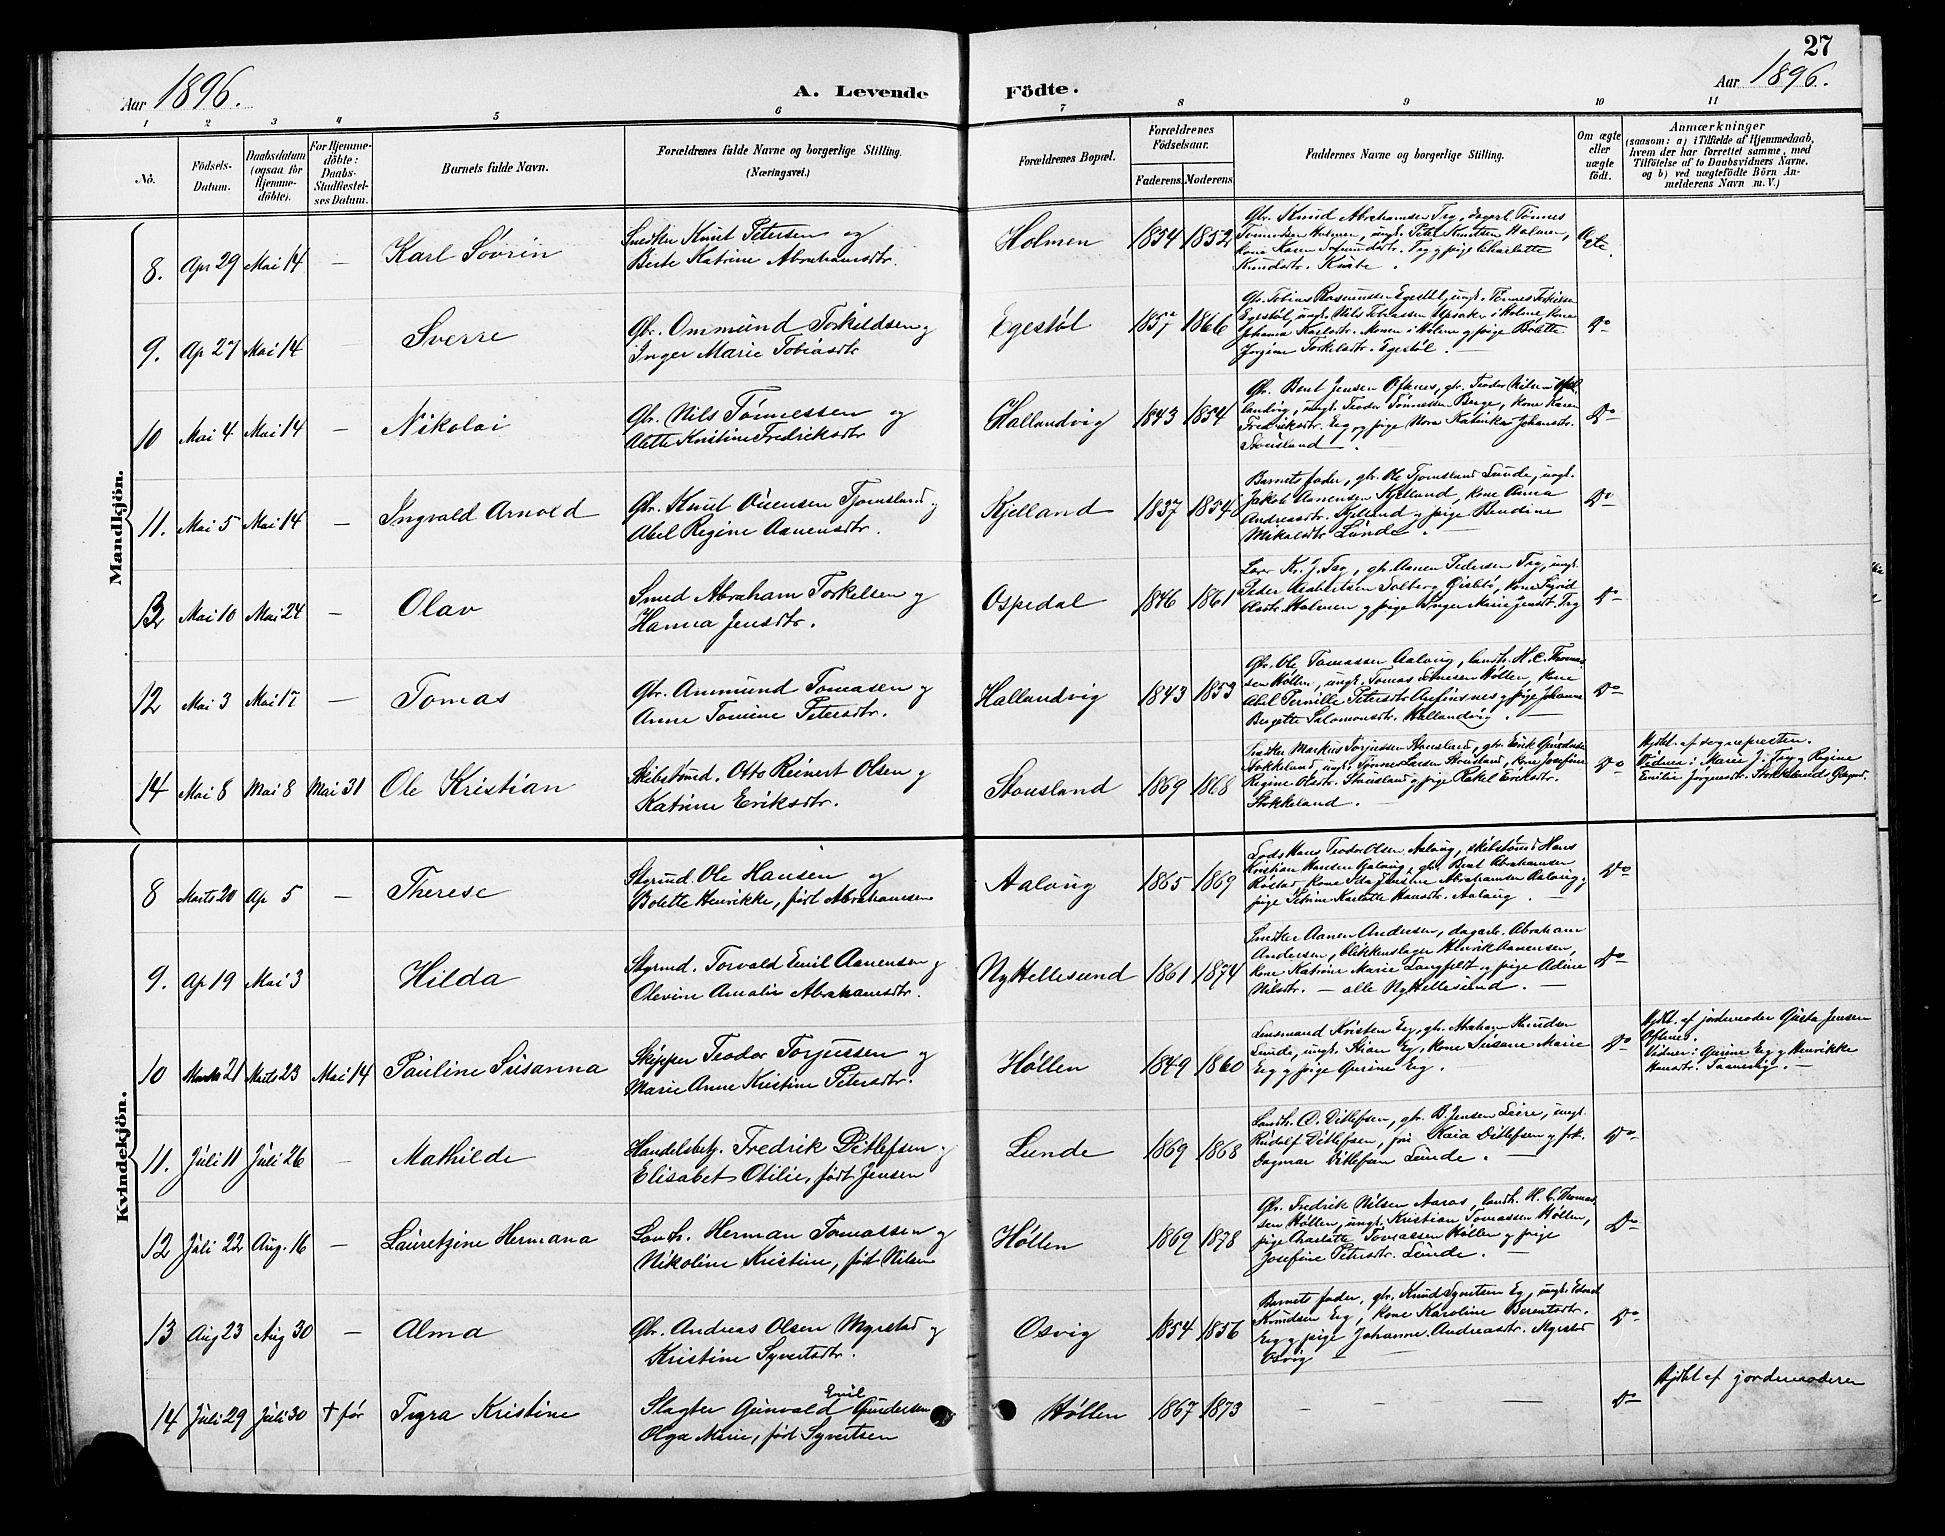 27
Aar 1896.
A. Levende Födte.
Aar 1896.
1 2 3 4 5 6 7 8 9 10 11
No.
Födsels-
Datum.
Daabsdatum
(ogsaa for
Hjemme-
döbte).
For Hjemme-
döbte:
Daabs-
Stadfæstel-
ses Datum.
Barnets fulde Navn.
Forældrenes fulde Navne og borgerlige Stilling.
(Næringsvei.)
Forældrenes Bopæl.
Forældrenes
Födselsaar.
Faderens. Moderens.
Faddernes Navne og borgerlige Stilling.
Om ægte
eller
uægte
födt.
Anmærkninger
(saasom: a) i Tilfælde af Hjemmedaab,
hvem der har forrettet samme, med
Tilföielse af to Daabsvidners Navne,
og b) ved uægtefödte Börn An-
melderens Navn m. V.)
Mandkjön.
8. Apr 29 Mai 14 — Karl Sövrin
Snedker Knut Petersen og
Berte Katrine Abrahamsdtr.
Holmen 1854 1852
Gbr. Knud Abrahamsen Try, dagarb. Tönnes
Tönnesen Holmen, ungk. Peter Knutsen Holmen,
kone Karen Try og pige Charlotte
Knudsdtr. Knibe.
Ægte.
9. Ap 27 Mai 14 Sverre
Gbr. Ommund Torkildsen og
Inger Marie Tobiasdtr
Egestöl 1857 1866
Gbr. Tobias Rasmussen Egestöl, ungk. Tönnes Torkilsen
Egestöl, ungk. Nils Tobiassen Upsaker i Holme, kone
Johanna Karlsdtr. Monen i Holme og pige Bolette
Jörgine Torkelsdtr. Egestöl. —
Do
10 Mai 4 Mai 14 — Nikolai
Gbr. Nils Tönnessen og
Aette Kristine Fredriksdtr
Hallandvig 1843 1854
Gbr. Bent Jensen Öftenes, gbr. Teodor Nilsen Hal-
landvig, ungk. Teodor Tönnessen Berge, kone Karen
Fredriksdtr. Eeg og pige Nora Katinka Johansdtr.
Stousland.
Do
11. Mai 5 Mai 14 — Ingvald Arnold
Gbr. Knut Ouensen Tjomsland og
Abel Regine Aanensdtr.
Kjelland 1837 1854
Barnets fader, gbr. Ole Tjomsland Lunde, ungk.
Jakob Aanensen Kjelland, kone Anna
Andreasdtr. Kjelland og pige Bendine
Mikalsdtr Lunde.
Do
13 Mai 10 Mai 24 — Olav
Smed Abraham Torkelsen og
Hanna Jensdtr.
Ospedal 1846 1861
Lærer K. J. Try, gbr. Aanen Pedersen Try, ungk.
Peder Solberg kone Sigrid
Olsdtr. Holmen og pige Inger Marie Jensdt. Try
Do
12 Mai 3 Mai 17 — Tomas
Gbr. Ammund Tomasen og
Anne Tomine Petersdtr.
Hallandvig 1843 1853
Gbr. Ole Tomassen Aalaug, landh. H. C. Thomas-
sen Höllen, ungk. Tomas Höllen, kone
Abel Pernille Petersdtr og pige Johanne
Bergette Salomonsdtr. Hallandvig. —
Do
14 Mai 8 Mai 8 Mai 31 Ole Kristian
Skibstömd. Otto Reinert Olsen og
Katrine Eriksdtr.
Stousland 1869 1868
Snedker Markus Torjussen Stousland, gbr. Erik
Stokkeland, ungk. Tönnes Larsen Stousland, kone Josefine
Regine Olsdtr. Stousland og pige Rakel Eriksdtr.
Stokkeland. —
Do
Hjdbt. af sognepresten.
Vidner: Marie J. Try og Regine
Emilie Jörgensdtr. Stokkelands
Kvindekjön.
8 Marts 20 Ap 5 — Therese
Styrmd. Ole Hansen og
Bolette Henrikke, født Abrahamsen
Aalaug 1865 1869
Lods Hans Teodor Olsen Aalaug, skibstömd Hans
Kristian Hansen Aalaug, gbr. Bent Abrahamsen
Röstad, kone Ida Josefine Abrahamsen Aalaug og
pige Petrine Karlotte Hansdtr. Aalaug. —
Do
9. Ap 19 Mai 3 Hilda
Styrmd. Torvald Emil Aanensen og
Olevine Amalie Abrahamsdtr.
Ny Hellesund 1861 1874
Snedker Aanen Andersen, dagarb. Abraham
Andersen, blikkenslager Henrik Aanensen,
kone Katrine Marie Langfeldt og pige Adine
Nilsdtr. — alle Ny Hellesund. —
Do
10 Marts 21 Marts 23 Mai 14 Pauline Susanna
Skipper Teodor Torjussen og
Marie Anne Kristine Petersdtr.
Höllen 1849 1860
Lensmand Kristen Eeg, gbr. Abraham Knudsen
Lunde, ungk. Stian Eg, kone Susane Marie
Eeg og pige Gurine Eeg.
Do
Hjdbt. af jordemoder Gusta Jensen
Öftenes.
Vidner: Gurine Eeg og Henrikke
Hansdtr. Taanevig. —
11. Juli 11 Juli 26 — Mathilde
Handelsbetj. Fredrik Ditlefsen og
Elisabet Otilie, født Jensen
Lunde 1869 1868
Landh. O. Ditlefsen, gbr. B. Jensen Leire, ungk.
Rudolf Ditlefsen, frk. Kaia Ditlefsen og frk.
Dagmar Ditlefsen Lunde. —
Do
12 Juli 22 Aug. 16 — Lauretzine Hermana
Landh. Herman Tomassen og
Nikoline Kristine, født Nilsen
Höllen 1869 1878
Gbr. Fredrik Nilsen Aaros, landh. H. C. Thomas-
sen Höllen, ungk. Kristian Tomassen Höllen,
pige Charlotte Tomassen Höllen og pige
Josefine Petersdtr. Lunde. —
Do
13 Aug 23 Aug 30 — Alma
Gbr. Andreas Olsen Myrstad og
Kristine Syvertsdtr.
Osvig 1854 1856
Barnets fader, gbr. Knud Syvertsen Eg, ungk. Edvard
Knudsen Eeg, kone Karoline Berentsdtr.
Eeg og pige Johanne Andreasdtr. Myrstad
Osvig —
Do
14 Juli 29 Juli 30 † før Tyra Kristine
Slagter Gunvald Emil Gundersen
Olga Marie, født Syvertsen
Höllen 1867 1873
— — — Do
Hjdbt af jordemoderen